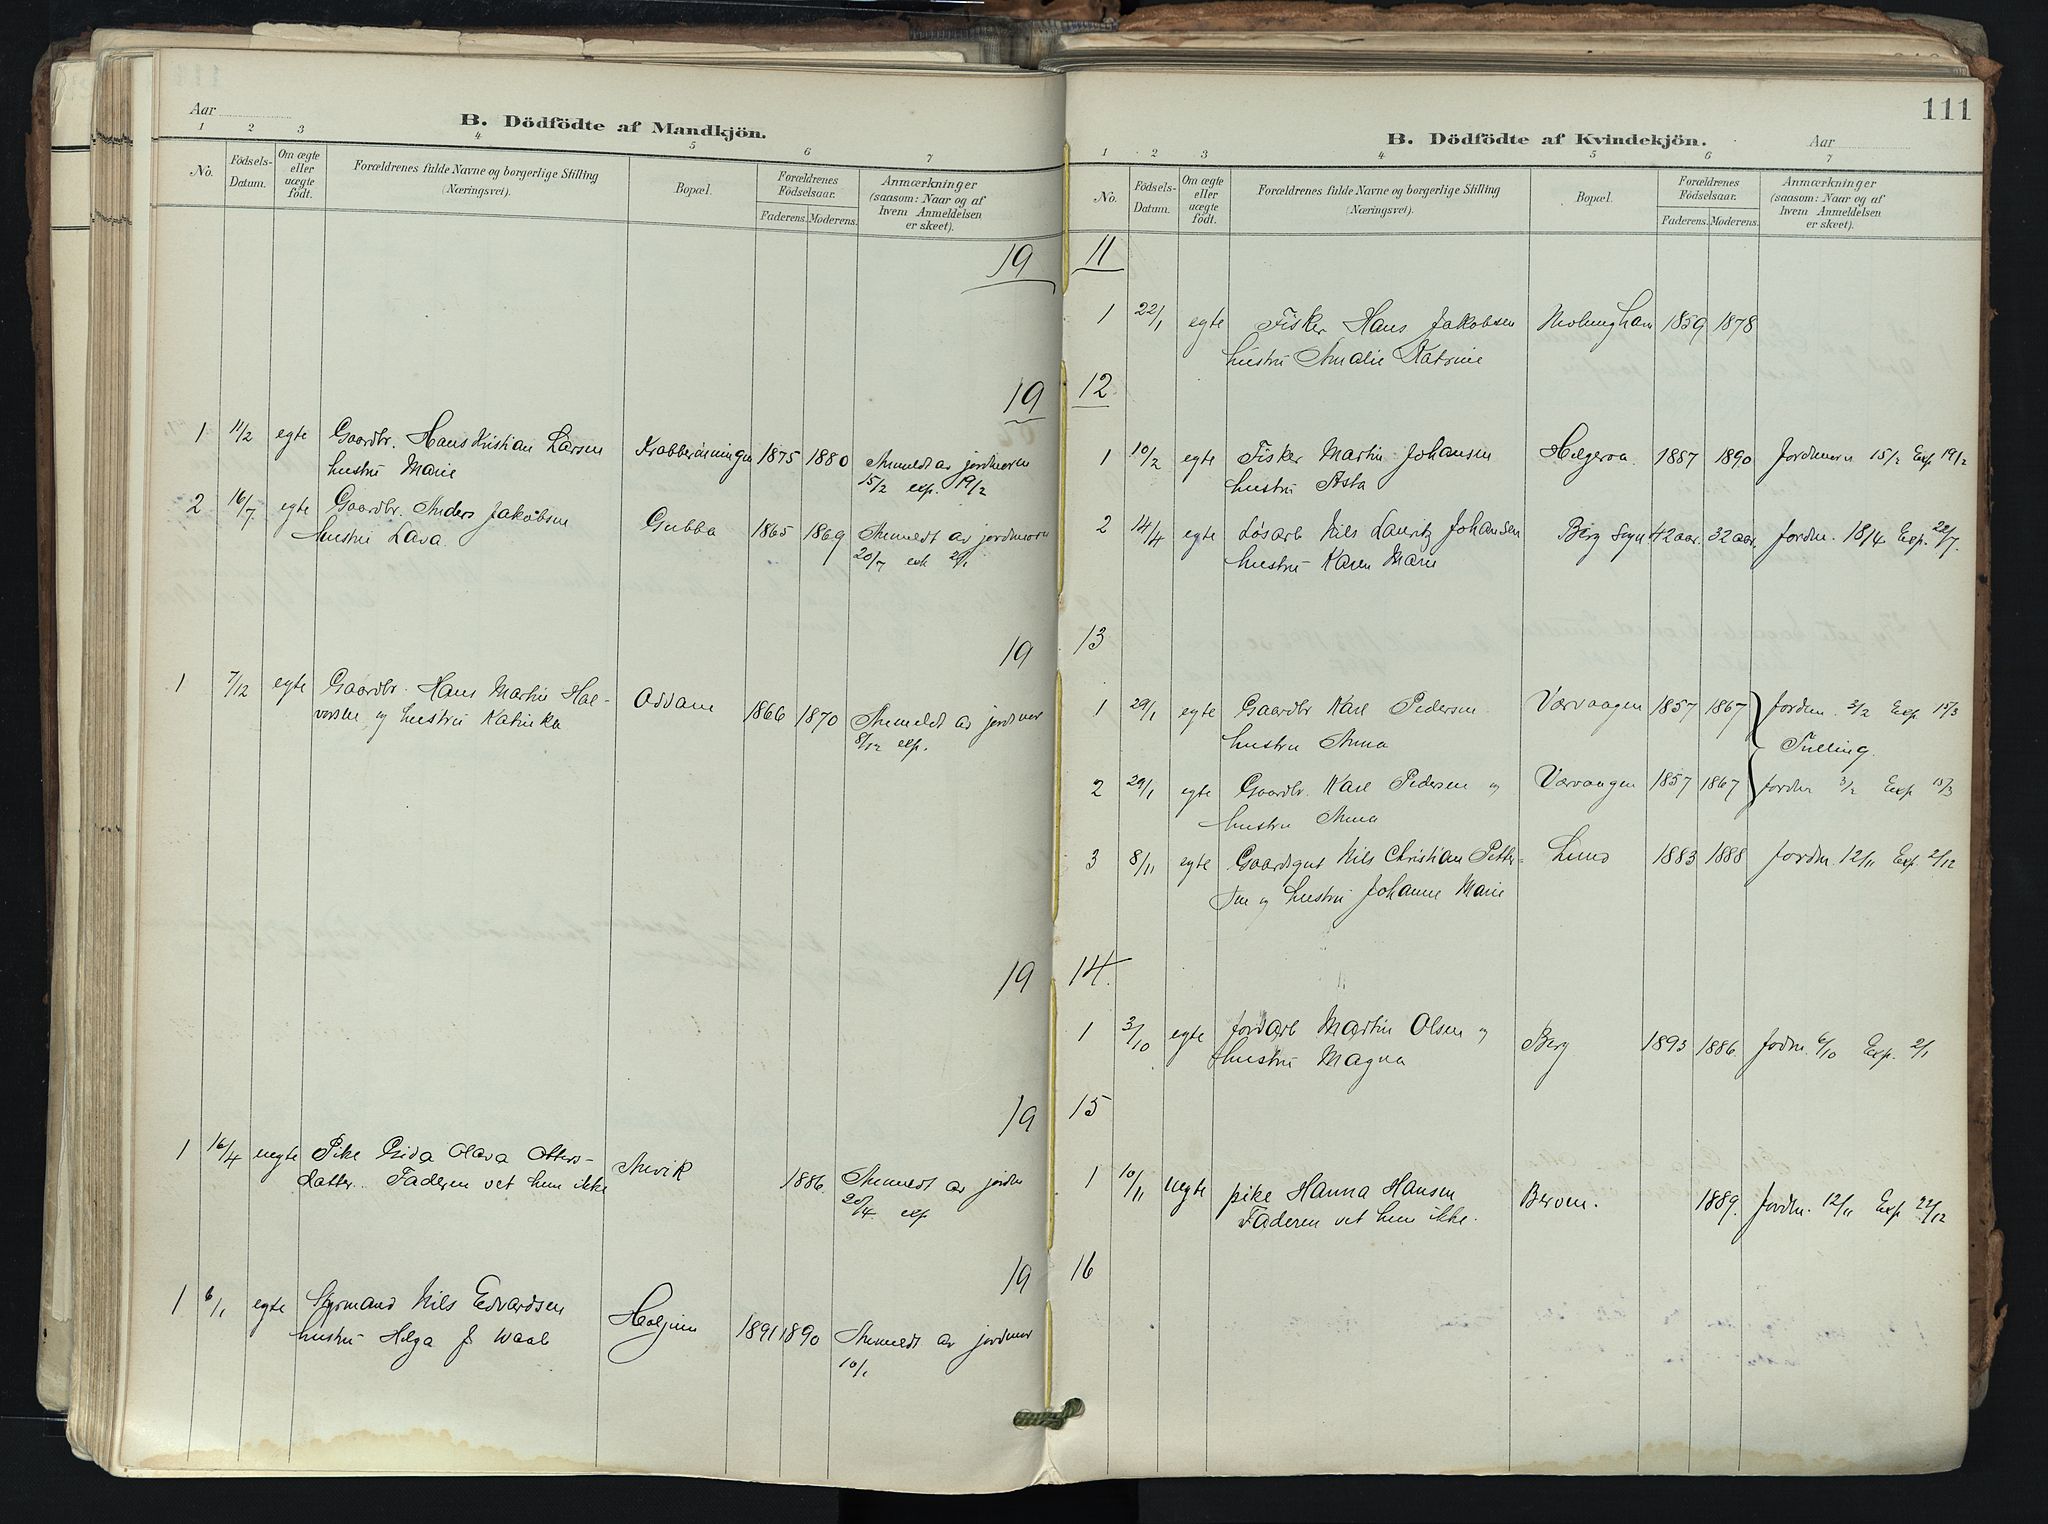 Aar
B. Dödfödte af Mandkjön.
1 2 3 4 5 6 7
No.
Födsels-
Datum.
Om ægte
eller
uægte
födt.
Forældrenes fulde Navne og borgerlige Stilling
(Næringsvei).
Bopæl.
Forældrenes
Födselsaar.
Faderens. Moderens.
Anmærkninger
(saasom: Naar og af
hvem Anmeldelsen
er skeet).
19
19
1 11/2 egte Gaardbr. Hans Kristian Larsen 1875 1880 Anmeldt av jordmoren
hustru Marie 15/2 exp. 19/2
2 16/7 egte Gaardbr. Anders Jakobsen Gubba 1865 1869 Anmeldt av jordmoren
hustru Lava. 20/7
19
1 7/12 egte Gaardbr. Hans Martin Hal- Oddane 1866 1870 Anmeldt av jordmor
vorsen og hustru Katinka 8/12 exp.
19
19
1 16/4 uegte Pike Gida Olava Otters- Anvik 1886. Anmeldt av jordm
datter. Faderen vet hun ikke 20/4. exp
19
1 6/1 egte Styrmand Nils Edvardsen 1891 1890 Anmeldt av jordmor
hustru Helga J Waal 10/1
111
B. Dödfödte af Kvindekjön.
Aar
1 2 3 4 5 6 7
No.
Födsels-
Datum.
Om ægte
eller
uægte
födt.
Forældrenes fulde Navne og borgerlige Stilling
(Næringsvei).
Bopæl.
Forældrenes
Födselsaar.
Faderens. Moderens.
Anmærkninger
(saasom: Naar og af
hvem Anmeldelsen
er skeet).
11
1 22/1 egte Fisker Hans Jakobsen Nevlunghavn 1859 1878
hustru Amalie Katrine
12
1 10/2 egte Fisker Martin Johansen Helgeroa. 1887 1890 Jordmorn 15/2 Exp 19/2
hustru Asta
2 14/4 egte Løsarb Nils Lauritz Johansen Berg Sogn 42 aar. 32 aar. Jordm. 18/4 Exp. 22/7.
hustru Karen Marie
13
1 29/1 egte Gaardbr Karl Pedersen Værvaagen 1857 1867 Jordm. 3/2 Exp 15/3
hustru Anna Tvilling.
2 29/1 egte Gaardbr. Karl Pedersen og Værvaagen 1857 1867 Jordm 3/2 Exp 15/3
hustru Anna
3 8/11 egte Gaardgut Nils Christian Petter- Lund 1883 1888 Jordm. 12/11 Exp 2/12
sen og hustru Johanne Marie
14.
1 3/10 egte Jordarb Martin Olsen og Berg 1893 1886. Jodm. 6/10 Exp. 2/1
hustru Magna
15
1 10/11 Uegte pike Hanna Hansen 1889. Jordm. 12/11 Exp 22/12
Faderen vet hun ikke.
16